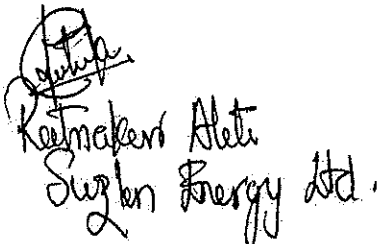 Ratnakar Aleti
Suzlon Energy Ltd.